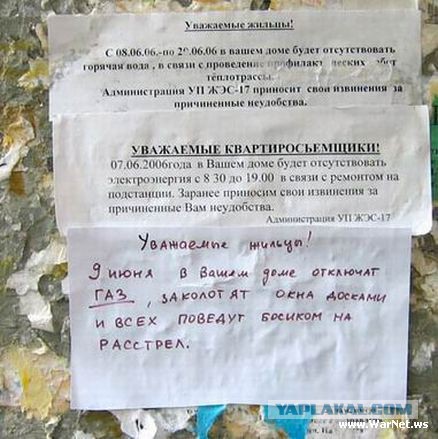 Уважаемые жильцы!
С 08.06.06.-по 2 .06.06 в вашем доме будет отсутствовать
горячая вода , в связи с проведение профилак еских бот
теплотрассы.
Администрация УП ЖЭС-17 приносит свои извинения за
причиненные неудобства.
УВАЖАЕМЫЕ КВАРТИРОСЪЕМЩИКИ!
07.06.2006года в Вашем доме будет отсутствовать
электроэнергия с 8 30 до 19.00 в связи с ремонтом на
подстанции. Заранее приносим свои извинения за
причиненные Вам неудобства.
Администрация УП ЖЭС-17
Уважаемые жильцы!
9 июня в Вашем доме отключат
ГАЗ, заколотят окна досками
и всех поведут босиком на
расстрел.
YAPLAKAL.COM
www.WarNet.ws